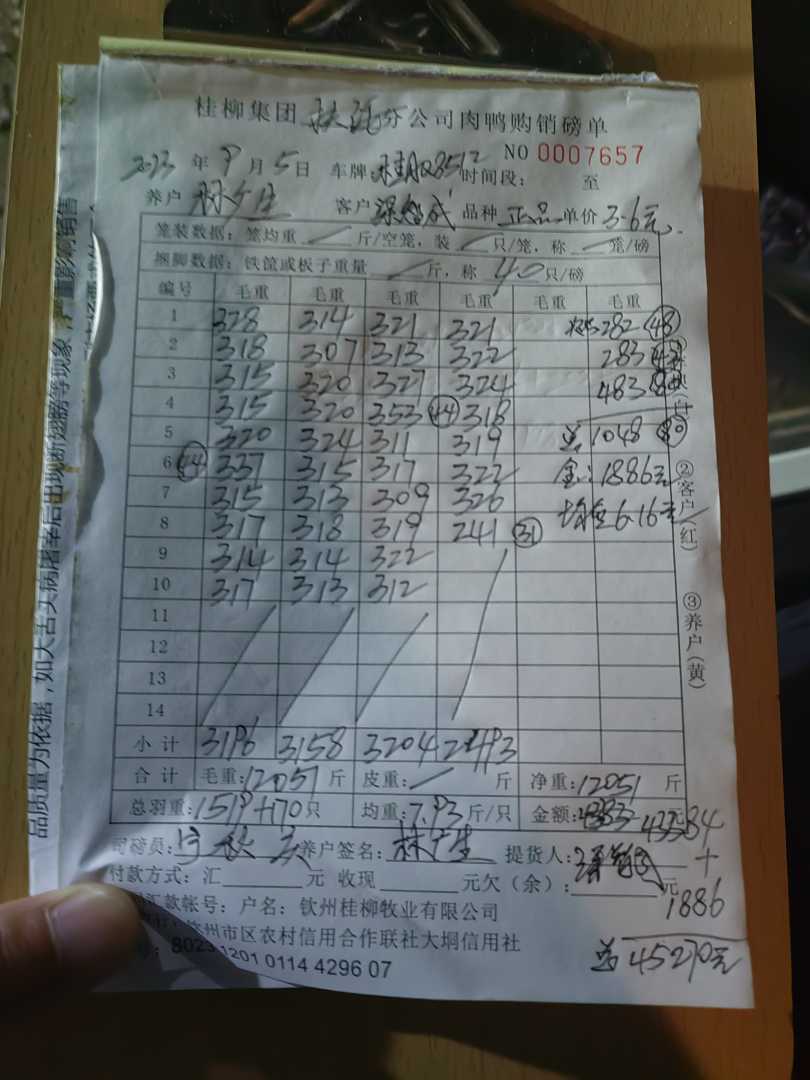 桂柳集团 分公司肉鸭购销磅单
NO 0007657
2023 年 9 月 5 日 车牌: 时间段: 至
养户 林广生 客户 品种 正品 单价 3.6元
笼装数据: 笼均重 / 斤/空笼, 装 / 只/笼, 称 / 笼/磅
捆脚数据: 铁筐或板子重量 / 斤, 称 40 只/磅
编号 毛重 毛重 毛重 毛重 毛重 毛重
1 328 314 321 321 282 (48)
2 318 307 313 322 283
3 315 320 327 324 483
4 315 320 353 (44) 318
5 320 324 311 319 总 1048
6 (44) 337 315 317 322 金: 1886元
7 315 313 309 326 均重 6.16
8 317 318 319 241 (31)
9 314 314 322
10 317 313 312
11
12
13
14
小计 3196 3158 3204 2493
合计 毛重: 12051 斤 皮重: / 斤 净重: 12051 斤
总羽重: 1519+170 只 均重: 7.93 斤/只 金额: 43384 元
司磅员: 养户签名: 林广生 提货人:
+
付款方式: 汇 元 收现 元欠(余): 元
1886
汇款帐号: 户名: 钦州桂柳牧业有限公司
州市区农村信用合作联社大垌信用社
总 45270元
8023 1201 0114 4296 07
②客户(红)
③养户(黄)
品质量为依据, 如大舌头病屠宰后出现断翅膀等现象, 严重影响销售